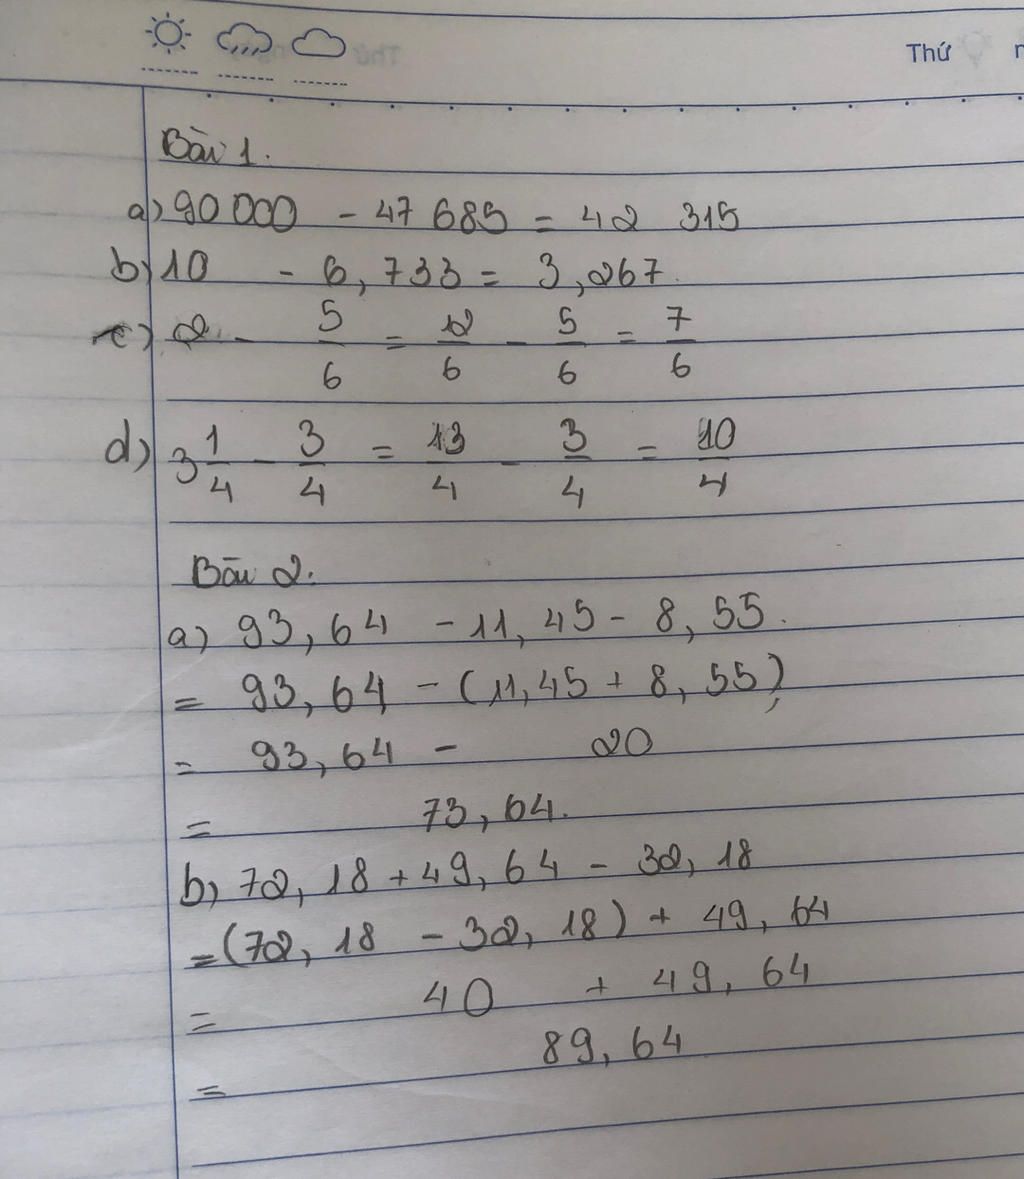 Thứ
Bài 1.
a) 90 000 - 47 685 = 42 315
b) 10 - 6,733 = 3,267
c) 2 - 5/6 = 12/6 - 5/6 = 7/6
d) 3 1/4 - 3/4 = 13/4 - 3/4 = 10/4
Bài 2.
a) 93,64 - 11,45 - 8,55.
= 93,64 - (11,45 + 8,55)
= 93,64 - 20
= 73,64.
b) 72,18 + 49,64 - 32,18
= (72,18 - 32,18) + 49,64
= 40 + 49,64
= 89,64